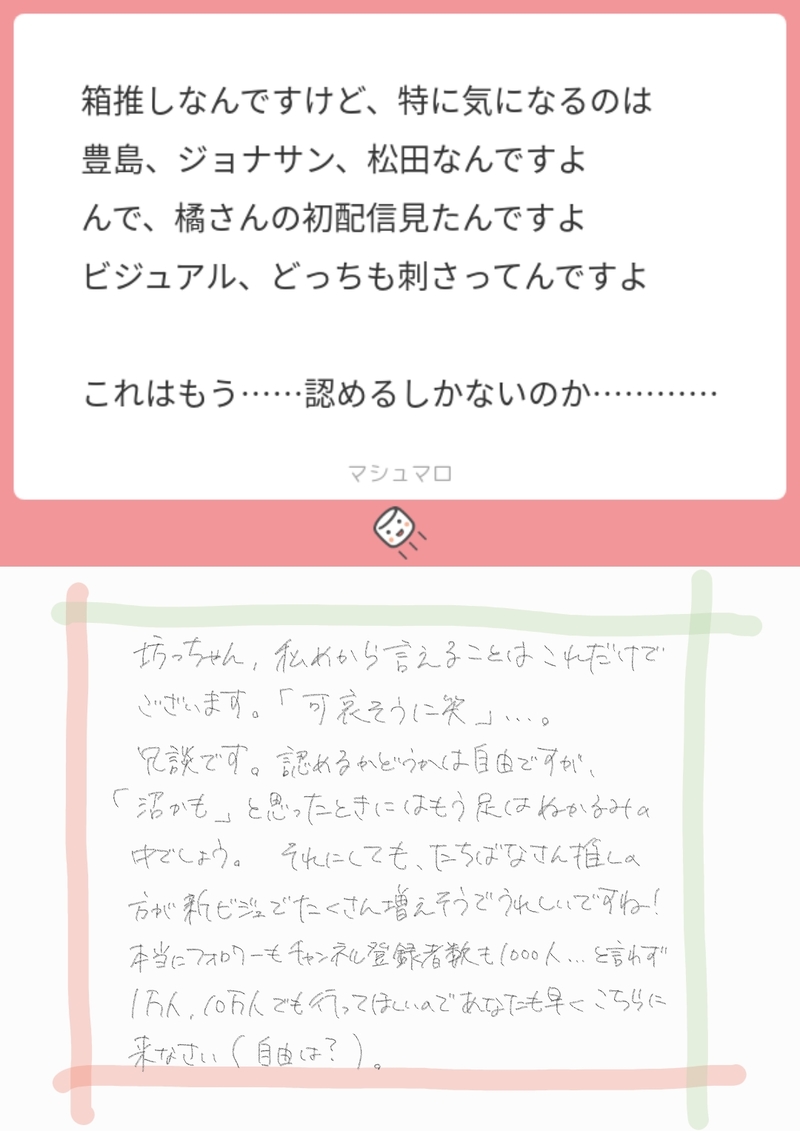 箱推しなんですけど、特に気になるのは
豊島、ジョナサン、松田なんですよ
んで、橘さんの初配信見たんですよ
ビジュアル、どっちも刺さってんですよ
これはもう……認めるしかないのか…………
マシュマロ
坊っちゃん, 私めから言えることはこれだけで
ございます。「可哀そうに笑」…。
冗談です。認めるかどうかは自由ですが、
「沼かも」と思ったときにはもう足はぬかるみの
中でしょう。 それにしても、たちばなさん推しの
方が新ビジュでたくさん増えそうでうれしいですね!
本当にフォロワーもチャンネル登録者数も1000人…と言わず
1万人, 10万人でも行ってほしいのであなたも早くこちらに
来なさい(自由は?)。